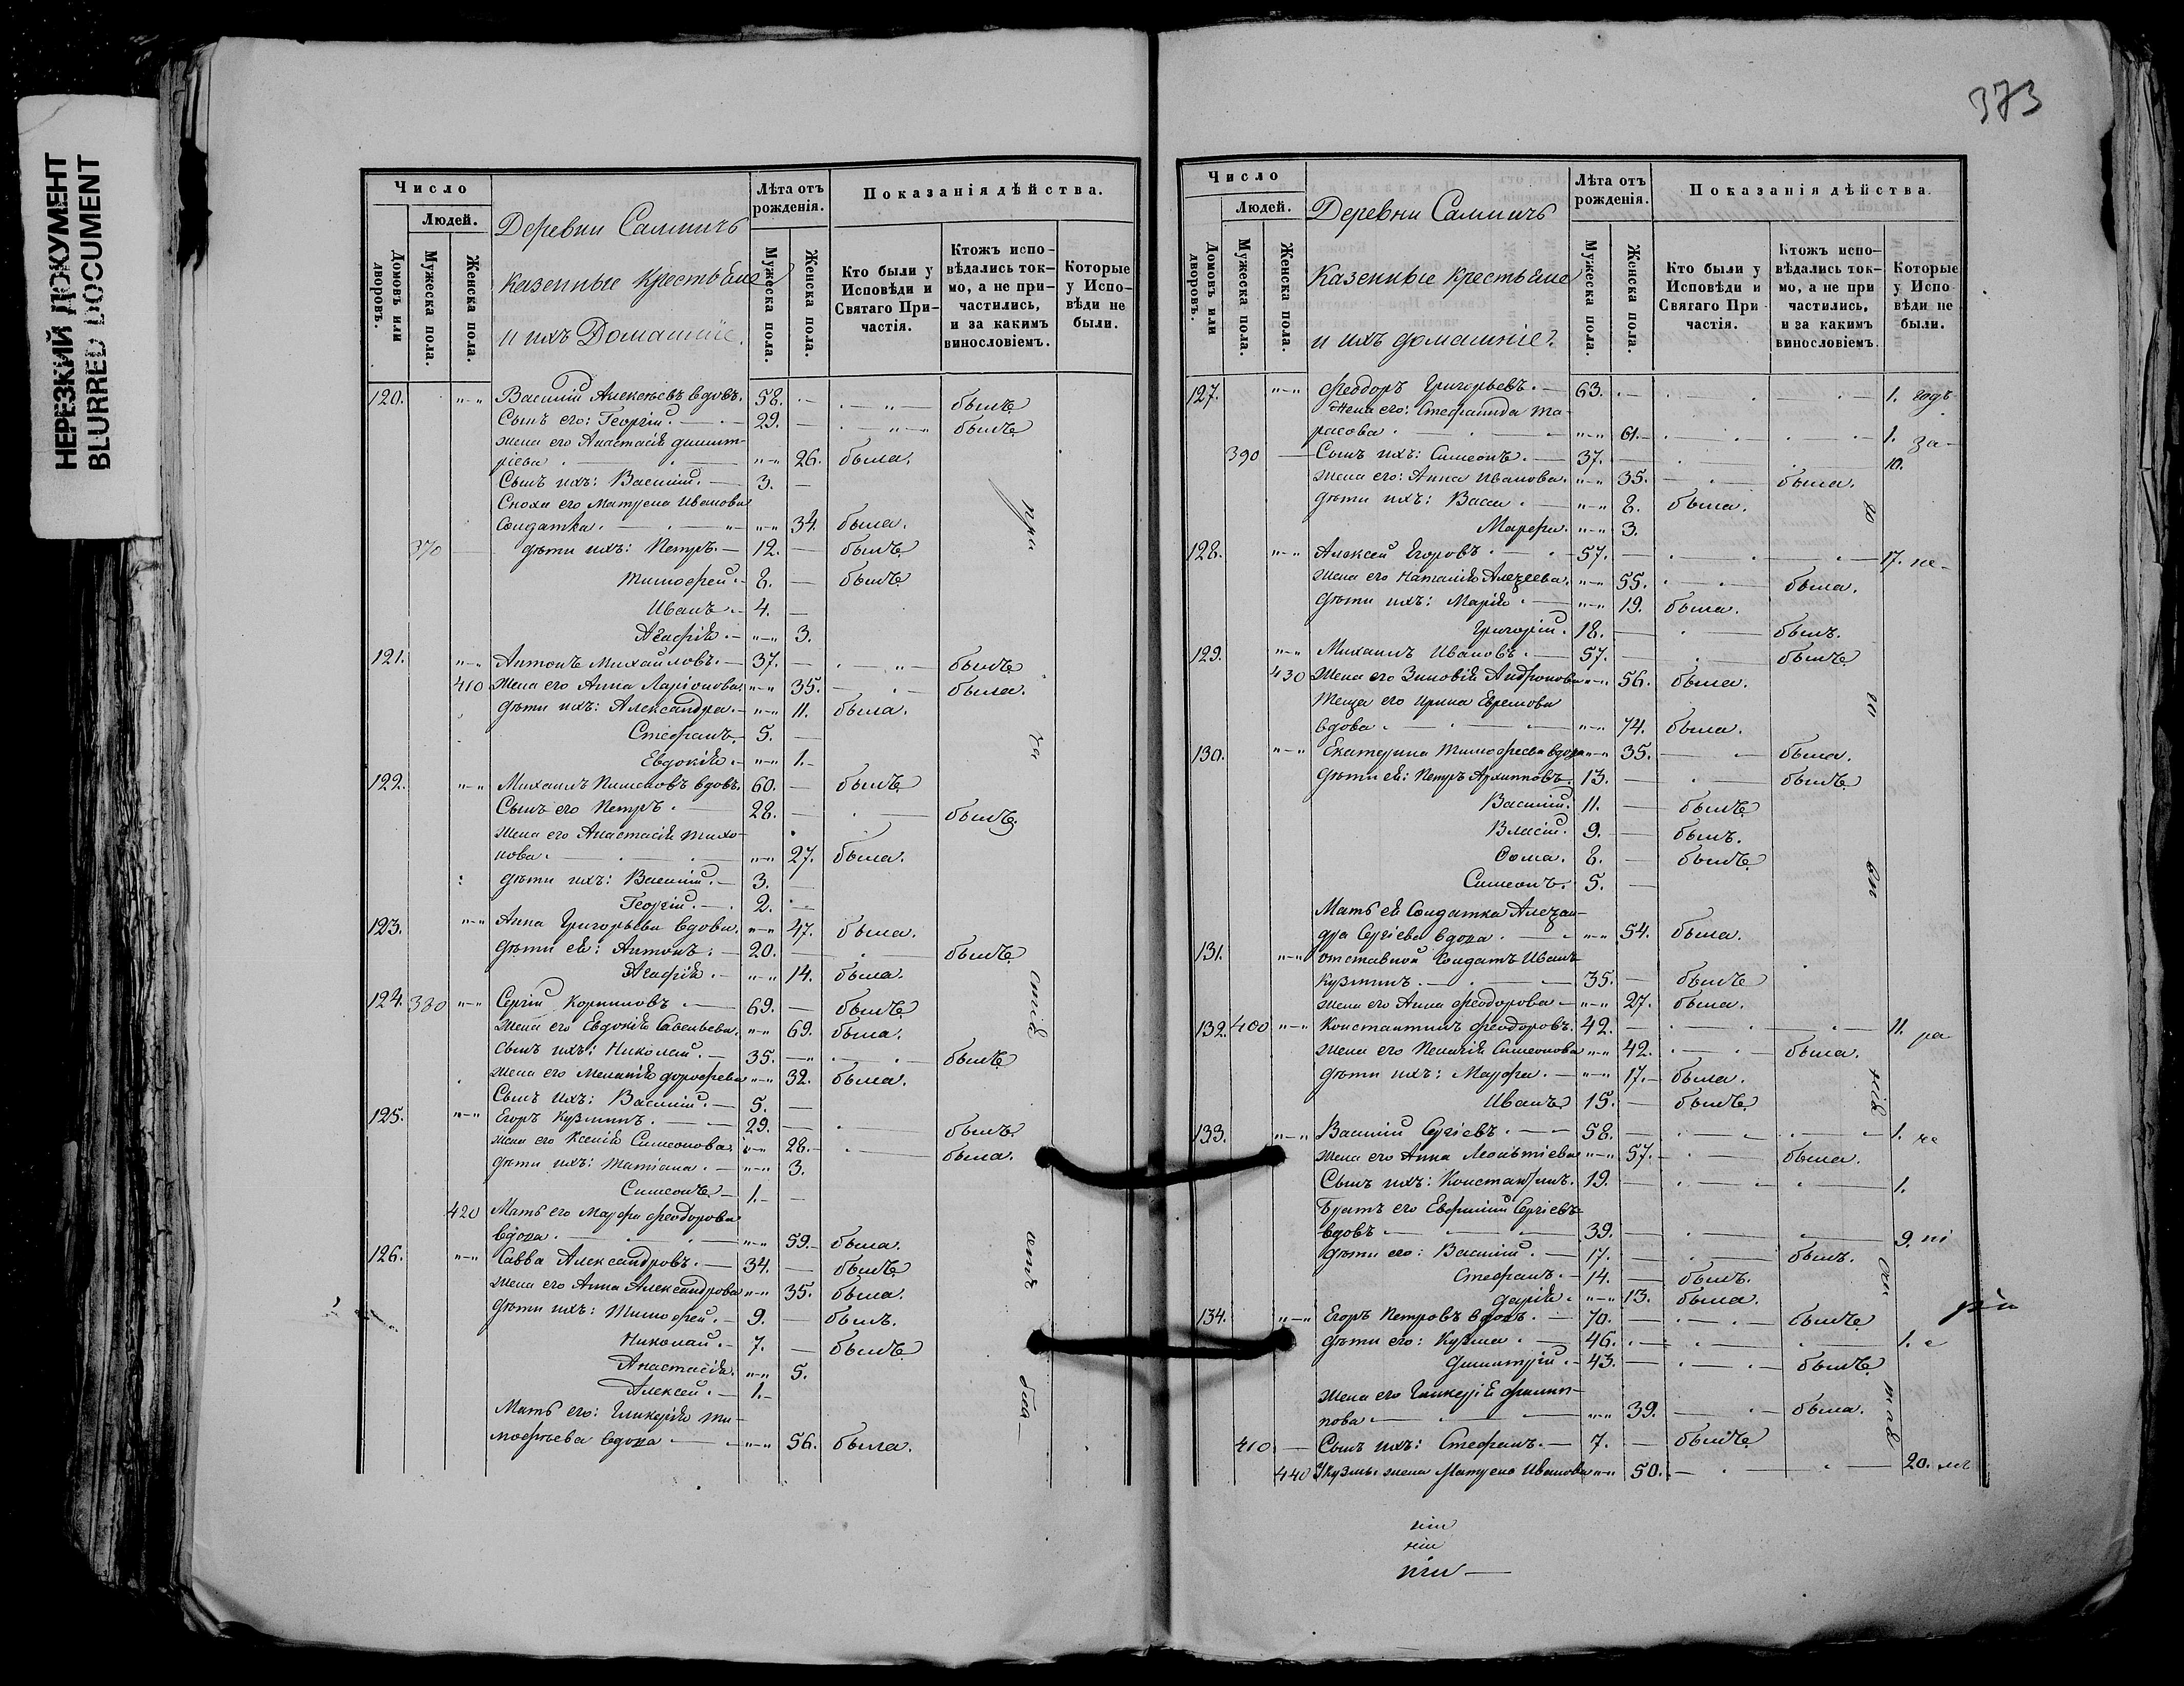 НЕРЕЗКИЙ ДОКУМЕНТ
BLURRED DOCUMENT
Число
Людей.
Домовъ или дворовъ.
Мужеска пола.
Женска пола.
Деревни Салмичъ
казенные крестьяне
и ихъ Домашніе.
Лѣта отъ рожденія.
Мужеска пола.
Женска пола.
Показанія дѣйства.
Кто были у Исповѣди и Святаго Причастія.
Ктожъ исповѣдались токмо, а не причастились, и за какимъ винословіемъ.
Которые у Исповѣди не были.
120. Василій Алексѣевъ вдовъ. 58. былъ
Сынъ его: Георгій. 29. былъ
жена его Анастасія Димит-
ріева 26. была.
Сынъ ихъ: Василій. 3.
Сноха его Матрена Иванова
Солдатка. 34. была.
370 дѣти ихъ: Петръ. 12. былъ
Тимофей. 8. былъ
Иванъ. 4.
Агафія. 3.
121. Антонъ Михайловъ. 37. былъ
410 Жена его Анна Ларіонова. 35. была.
дѣти ихъ: Александра. 11. была.
Стефанъ. 5.
Евдокія. 1.
122. Михаилъ Пименовъ вдовъ. 60. былъ
Сынъ его Петръ. 28. былъ
жена его Анастасія Тихо-
нова. 27. была.
дѣти ихъ: Василій. 3.
Георгій. 2.
123. Анна Григорьева вдова. 47. была.
дѣти ея: Антонъ. 20. былъ
Агафія. 14. была.
124. 380 Сергій Корниловъ. 69. былъ
жена его Евдокія Савельева. 69. была.
Сынъ ихъ: Николай. 35. былъ
жена его Меланія Дорофеева 32. была.
Сынъ ихъ: Василій. 5.
125. Егоръ Кузминъ. 29. былъ.
жена его Ксенія Симеонова. 28. была.
дѣти ихъ: Татіана. 3.
Симеонъ. 1.
420 Мать его Марфа Феодорова
вдова. 59. была.
126. Савва Александровъ. 34. былъ
жена его Анна Александрова 35. была.
дѣти ихъ: Тимофей. 9. былъ.
Николай. 7. былъ
Анастасія. 5.
Алексей. 1.
Мать его: Гликерія Ти-
мофѣева вдова 56. была.
373
Число
Людей.
Домовъ или дворовъ.
Мужеска пола.
Женска пола.
Деревни Салмичъ
Казенные крестьяне
и ихъ домашніе.
Лѣта отъ рожденія.
Мужеска пола.
Женска пола.
Показанія дѣйства.
Кто были у Исповѣди и Святаго Причастія.
Ктожъ исповѣдались токмо, а не причастились, и за какимъ винословіемъ.
Которые у Исповѣди не были.
127. Феодоръ Григорьевъ. 63. 1. годъ
Жена его: Стефанида Та-
расова. 61. 1. за-
390 Сынъ ихъ: Симеонъ. 37. 10.
жена его: Анна Иванова. 35. была.
дѣти ихъ: Васса. 8. была.
Марфа. 3.
128. Алексей Егоровъ. 57. 17. не-
жена его Наталія Алезеева. 55. была.
дѣти ихъ: Марія. 19. была.
Григорій. 18. былъ.
129. Михаилъ Ивановъ. 57. былъ
430 Жена его Зиновія Андронова 56. была.
Теща его Ирина Ефремова
вдова. 74. была.
130. Екатерина Тимофеева вдова 35. была.
дѣти ея: Петръ Архиповъ. 13. былъ
Василій. 11. былъ
Власій. 9. былъ.
Фома. 8. былъ
Симеонъ. 5.
Мать ея Солдатка Алезан-
дра Сергіева вдова. 54. была.
131. отставной Солдатъ Иванъ
Кузминъ. 35. былъ
жена его Анна Феодорова 27. была.
132. 400 Константинъ Феодоровъ. 42. 11. ра
жена его Пелагія Симеонова 42. была.
дѣти ихъ: Марфа. 17. была.
Иванъ 15. былъ
133. Василій Сергіевъ. 58. 1. че
жена его Анна Леонтіева 57. была.
Сынъ ихъ: Константинъ. 19. 1.
Братъ его Ефимій Сергіевъ
вдовъ 39. 9. ні
дѣти его: Василій. 17. былъ.
Стефанъ. 14. былъ.
Дарія. 13. была.
134. Егоръ Петровъ вдовъ. 70. былъ
дѣти его: Кузма. 46. 1. е
Димитрій. 43. былъ
жена его Гликерія Филип-
пова 39. была.
410 Сынъ ихъ: Стефанъ. 7. былъ
440 Укузмы жена Матрена Иванова 50. 20.